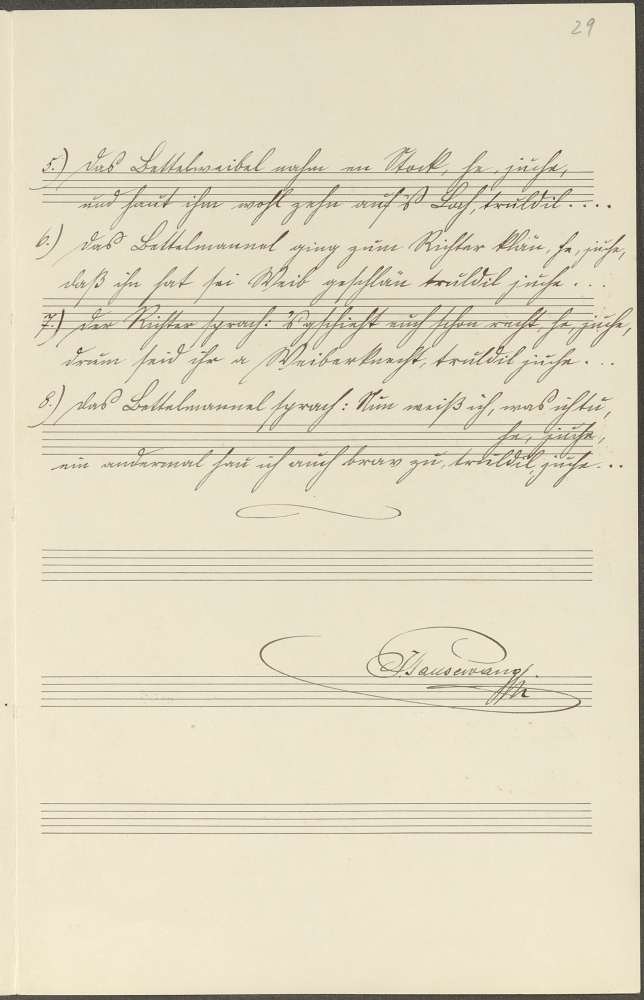 29
5.) Das Bettelweibel nahm en Stock, he, juche,
und haut ihm wohl zehn auf's Loch, truldil....
6.) Das Bettelmannel ging zum Richter klän, he, juhe,
daß ihn hat sei Weib geschlän truldil juche...
7.) Der Richter sprach: 's gschieht euch schon recht, he, juche,
drum seid ihr a Weiberknecht, truldil juche...
8.) Das Bettelmannel sprach: Nun weiß ich, was ich tu,
he, juche,
ein andermal hau ich auch brav zu, truldil, juche...